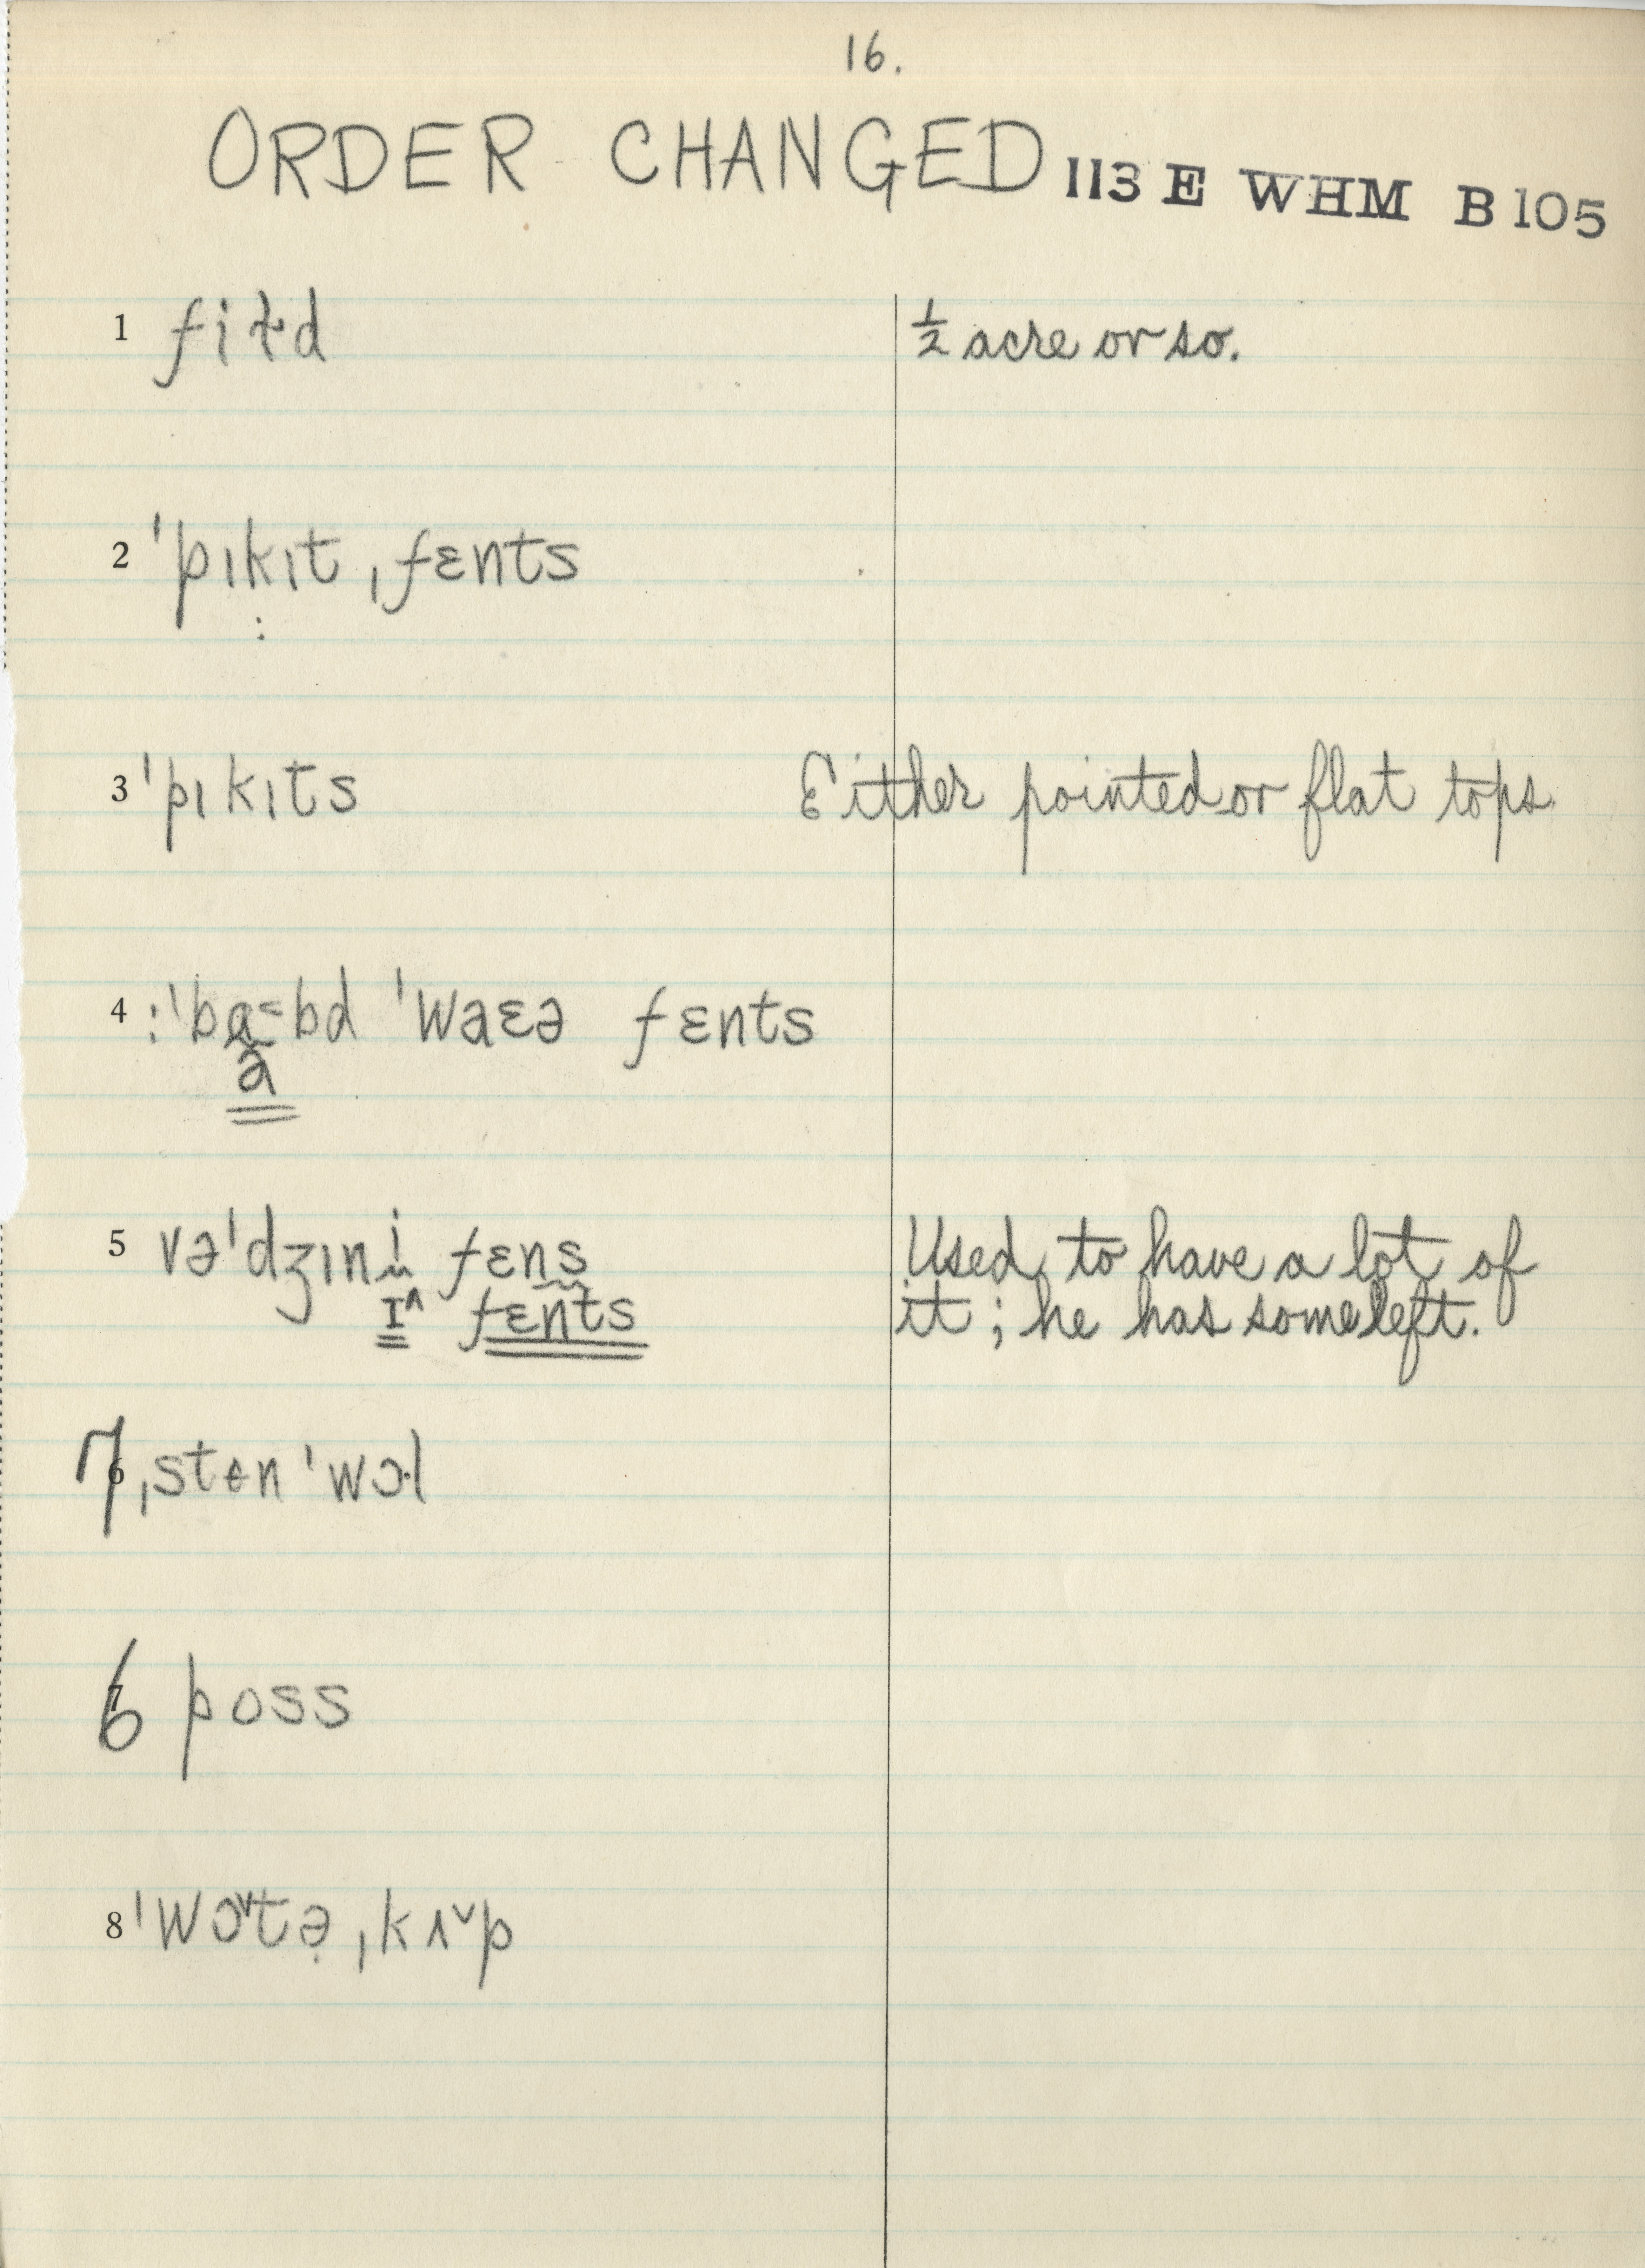 16.
ORDER CHANGED 113 E WHM B 105
1 fiɫd ½ acre or so.
2 ˈpɪkɪt ˌfɛnts
:
3 ˈpɪkɪts Either pointed or flat tops.
4 :ˈbɑ˂bd ˈwaɛə fɛnts
a
5 vəˈdʒɪni fɛns Used to have a lot of
ɪ^ fɛnts it; he has some left.
7 ˌsten ˈwɔl
6 poss
8 ˈwɔ˅tə ˌkʌ˅p